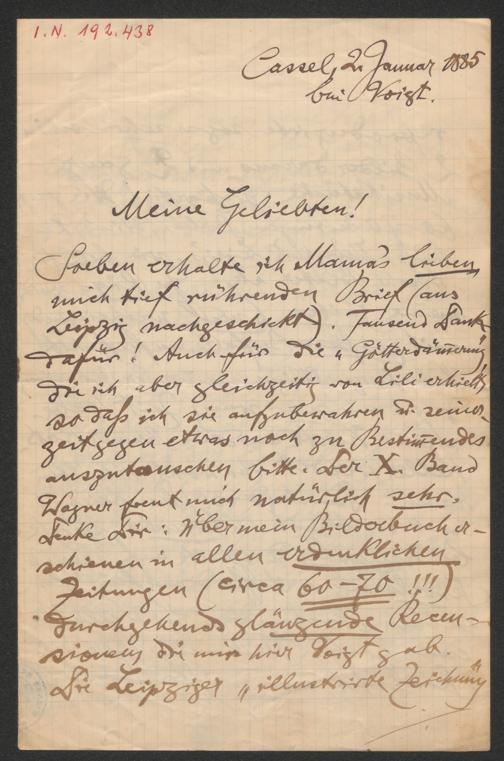 I.N. 192.438
Cassel, 2. Januar 1885
bei Voigt.
Meine Geliebten!
Soeben erhalte ich Mama's lieben,
mich tief rührenden Brief (aus
Leipzig nachgeschickt). Tausend Dank
dafür! Auch für die „Götterdämerung"
die ich aber gleichzeitig von Lili erhielt,
so daß ich sie aufzubewahren u. seiner-
zeit gegen etwas noch zu Bestimendes
auszutauschen bitte. Der X. Band
Wagner freut mich natürlich sehr.
Denke Dir: Über mein Bilderbuch er-
schienen in allen erdenklichen
Zeitungen (circa 60–70 !!!)
durchgehends glänzende Recen-
sionen die mir hier Voigt gab.
Die Leipziger „illustrirte Zeitung